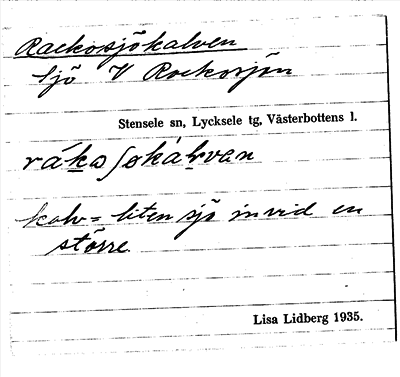 Raekosjökalven
sjö V Rackosjön
Stensele sn, Lycksele tg, Västerbottens l.
kalv = liten sjö invid en
större.
Lisa Lidberg 1935.